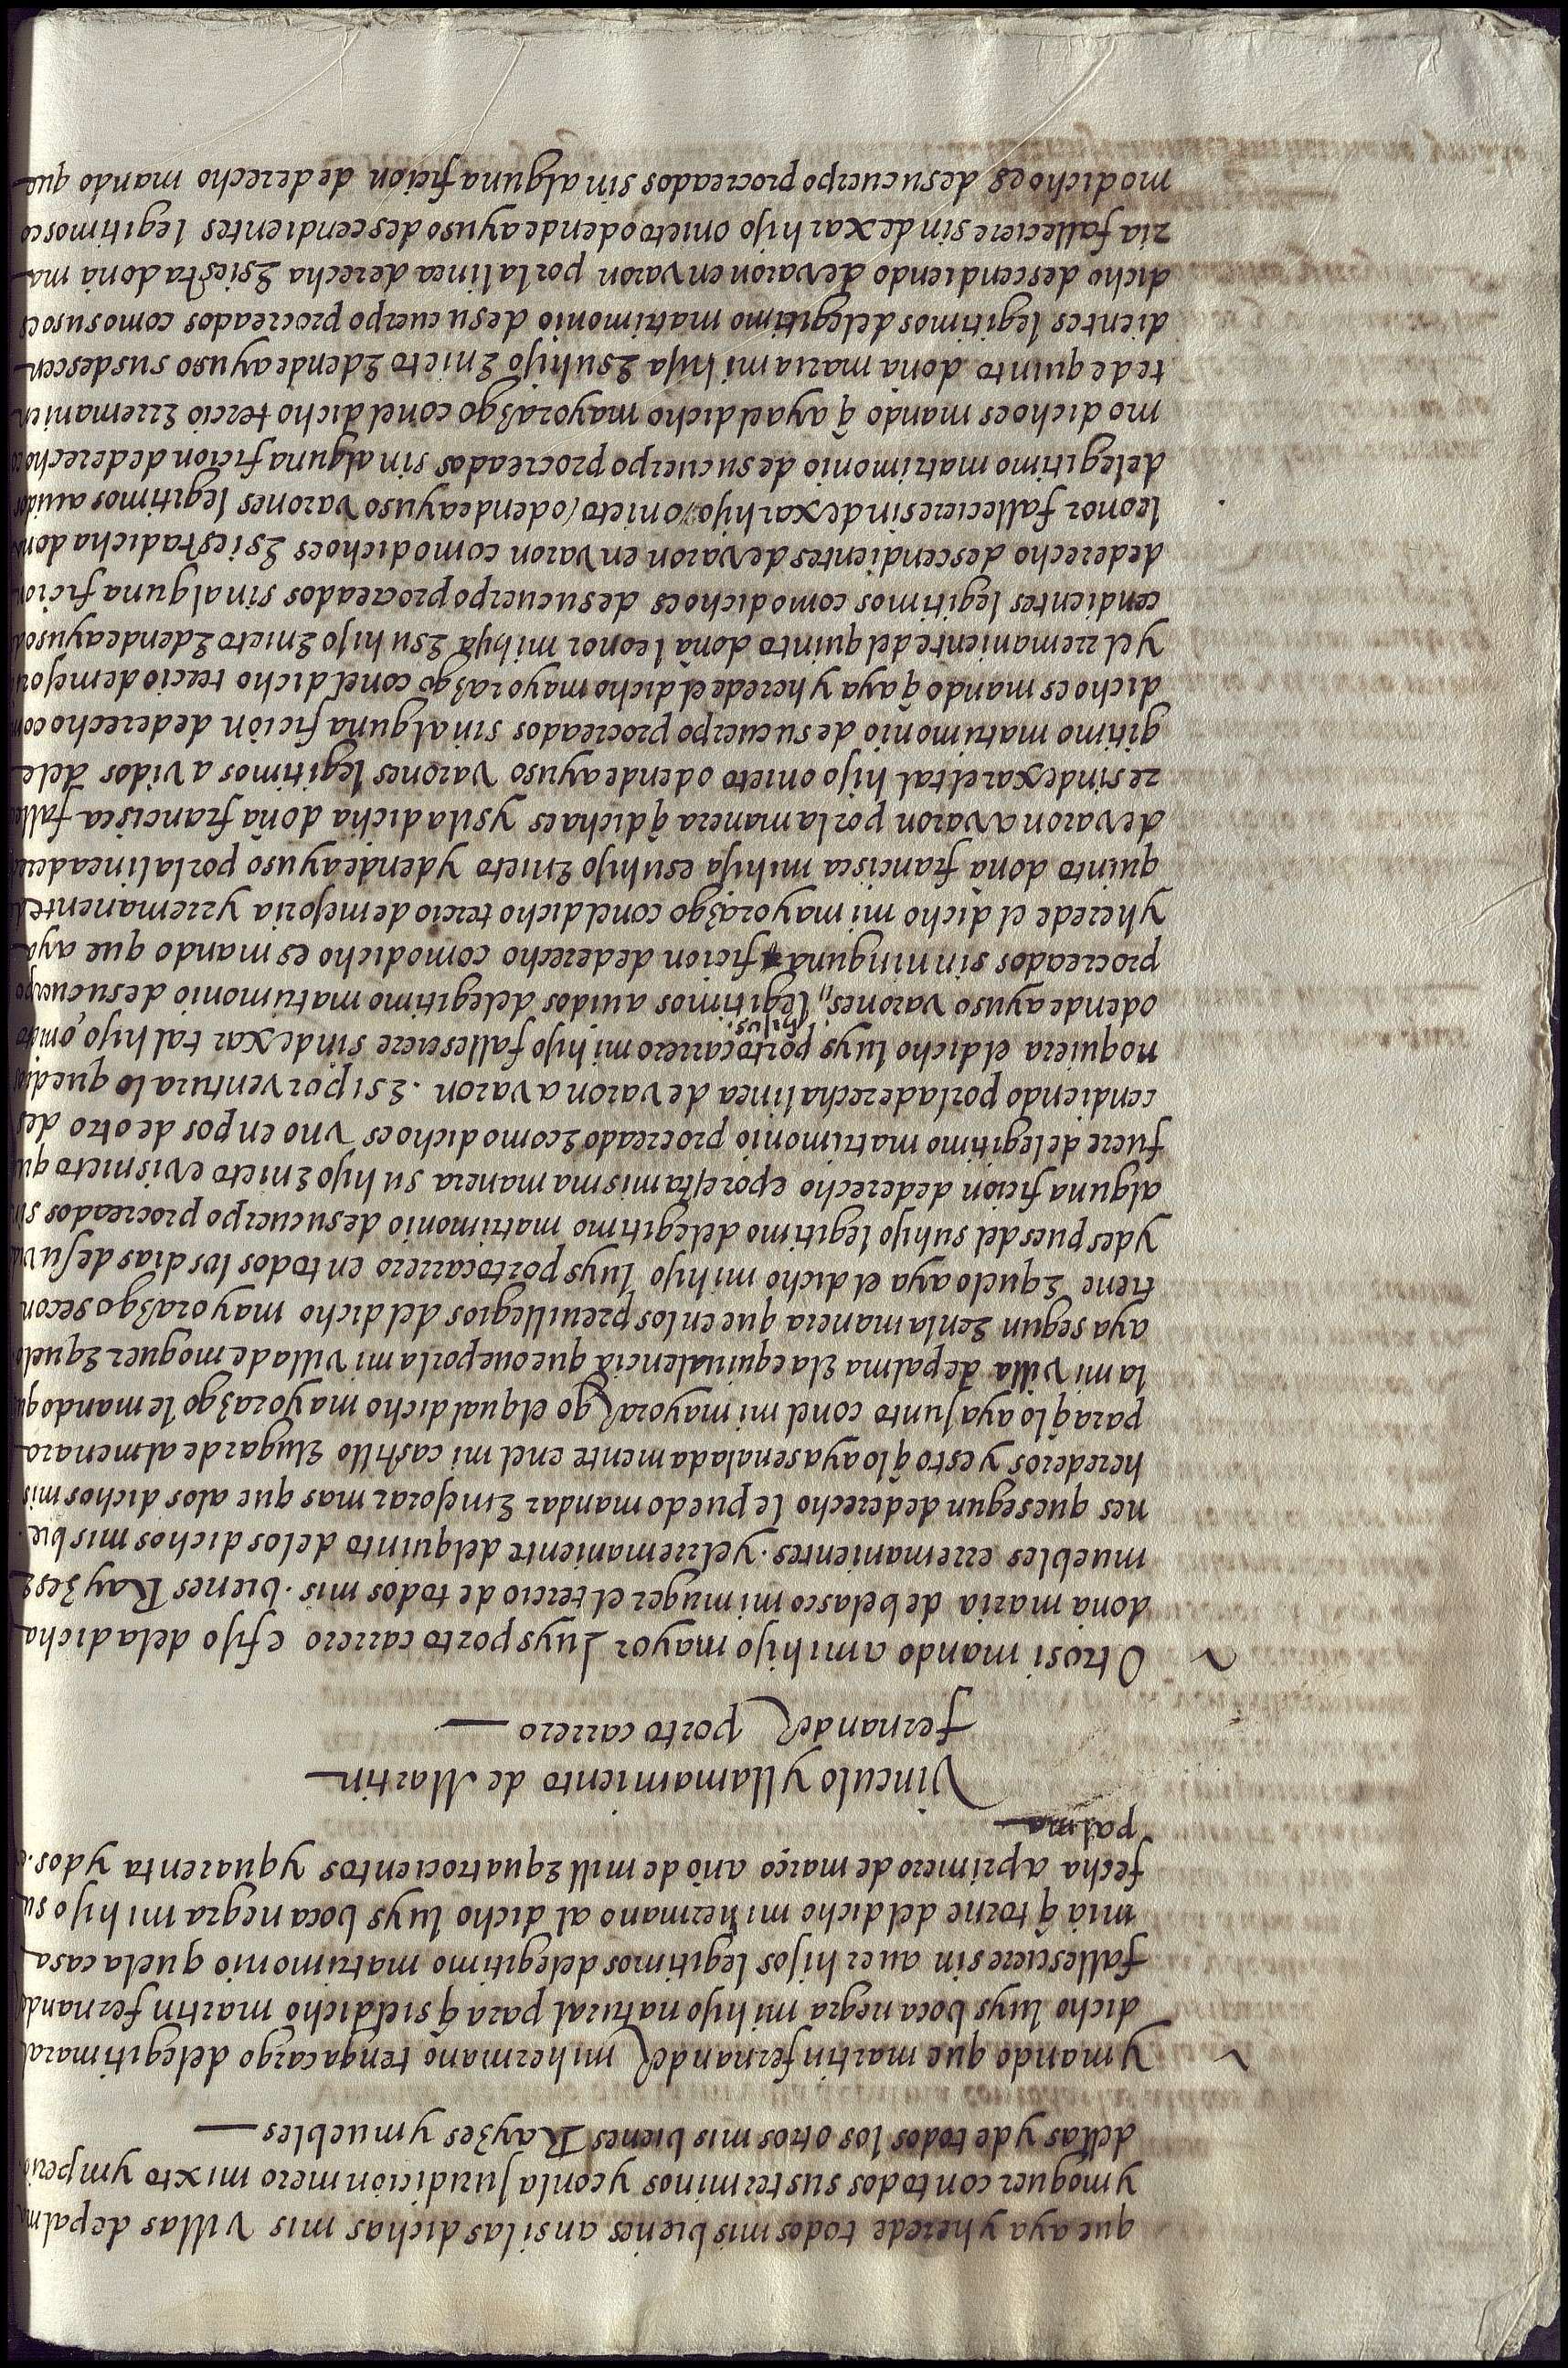 que aya y herede todos mis bienes ansi las dichas mis villas de palma
y moguer con todos sus terminos y con la juridicion mero mixto ymperio
dellas y de todos los otros mis bienes Rayzes y muebles
Y mando que martin fernandez mi hermano tenga cargo de legitimar al
dicho luys bocanegra mi hijo natural para q̃ si el dicho martin fernandez
fallesciere sin auer hijos legitimos de legitimo matrimonio que la casa
mia q̃ torne del dicho mi hermano al dicho luys bocanegra mi hijo su
fecha a primero de março año de mill e quatrocientos y quarenta y dos.
palma
Vinculo y llamamiento de Martin
fernandez porto carrero
Otrosi mando a mi hijo mayor Luys porto carrero e fijo de la dicha
doña maria de belasco mi muger el tercio de todos mis bienes Rayzes e
muebles e rremanientes. y el rremaniente del quinto de los dichos mis bie
nes que segun de derecho le puedo mandar e mejorar mas que a los dichos mis
herederos y esto q̃ lo aya señaladamente en el mi castillo e lugar de almenara
para q̃ lo aya junto con el mi mayorazgo el qual dicho mayorazgo le mando que
la mi villa de palma e la equiualencia que oue por la mi villa de moguer e que lo
aya segun e en la manera que en los preuillegios del dicho mayorazgo se con
tiene e que lo aya el dicho mi hijo luys portocarrero en todos los dias de su vida
y despues del su hijo legitimo de legitimo matrimonio de su cuerpo procreados sin
alguna ficion de derecho e por esta misma manera su hijo e nieto e visnieto que
fuere de legitimo matrimonio procreado e como dicho es vno en pos de otro des
cendiendo por la derecha linea de varon a varon. e si por ventura lo que dios
no quiera el dicho luys portocarrero mi hijo fallesciere sin dexar tal hijo, o nieto
o dende ayuso varones hijos legitimos auidos de legitimo matrimonio de su cuerpo
procreados sin ninguna ficion de derecho como dicho es mando que aya
y herede el dicho mi mayorazgo con el dicho tercio de mejoria y rremanente del
quinto doña francisca mi hija e su hijo e nieto y dende ayuso por la linea derecha
de varon a varon por la manera q̃ dicha es y si la dicha doña francisca falle
re sin dexar el tal hijo o nieto o dende ayuso varones legitimos avidos de le
gitimo matrimonio de su cuerpo procreados sin alguna ficion de derecho como
dicho es mando q̃ aya y herede el dicho mayorazgo con el dicho tercio de mejoria
y el rremaniente del quinto doña leonor mi hija e su hijo e nieto e dende ayuso des
cendientes legitimos como dicho es de su cuerpo procreados sin alguna ficion
de derecho descendientes de varon en varon como dicho es e si esta dicha doña
leonor falleciere sin dexar hijo / o nieto / o dende ayuso varones legitimos auidos
de legitimo matrimonio de su cuerpo procreados sin alguna ficion de derecho co
mo dicho es mando q̃ aya el dicho mayorazgo con el dicho tercio e rremanien
te de quinto doña maria mi hija e su hijo e nieto e dende ayuso sus descen
dientes legitimos de legitimo matrimonio de su cuerpo procreados como suso es
dicho descendiendo de varon en varon por la linea derecha e si esta doña ma
ria falleciere sin dexar hijo o nieto o dende ayuso descendientes legitimos co
mo dicho es de su cuerpo procreados sin alguna ficion de derecho mando que